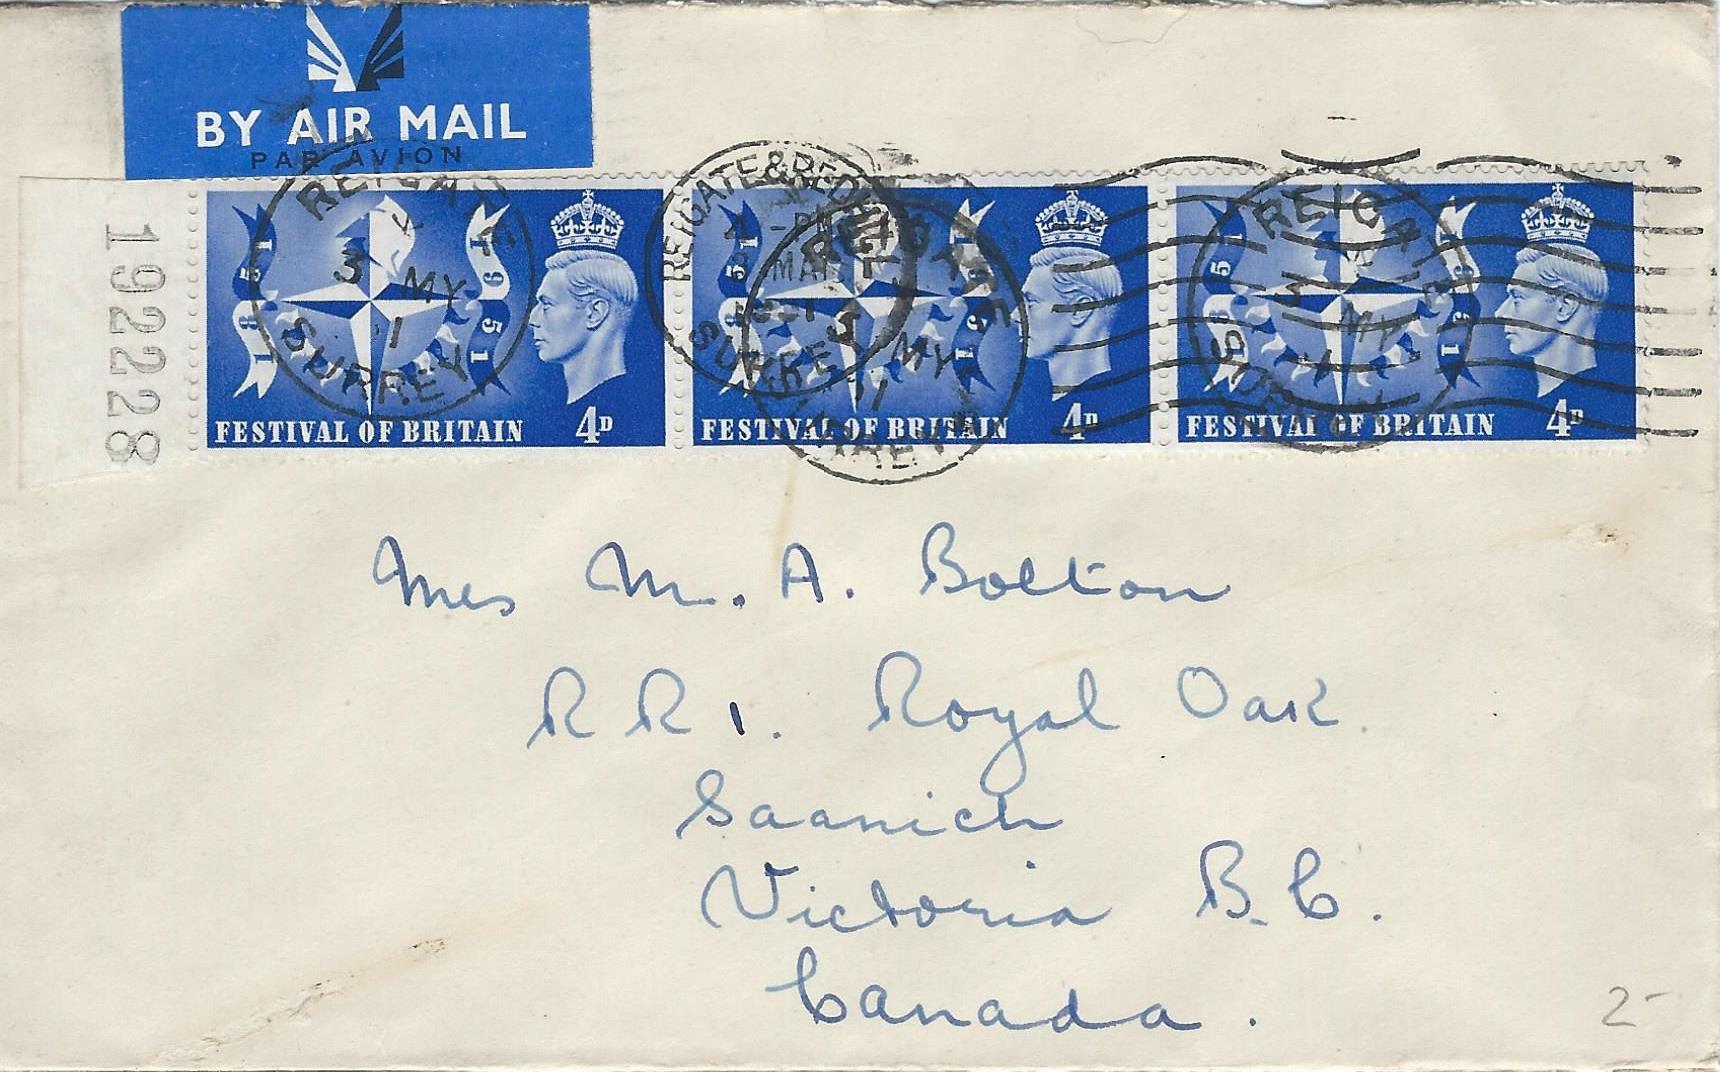 BY AIR MAIL
PAR AVION
192228
1851 1951
FESTIVAL OF BRITAIN 4D
FESTIVAL OF BRITAIN 4D
FESTIVAL OF BRITAIN 4D
REIGATE
3 MY
SURREY
REIGATE & REDHILL
MAY
1951
SURREY
REIGATE
3 MY
SURREY
REIGATE
3 MY
Mrs M. A. Bolton
R R 1. Royal Oak
Saanich
Victoria B.C.
Canada.
2-